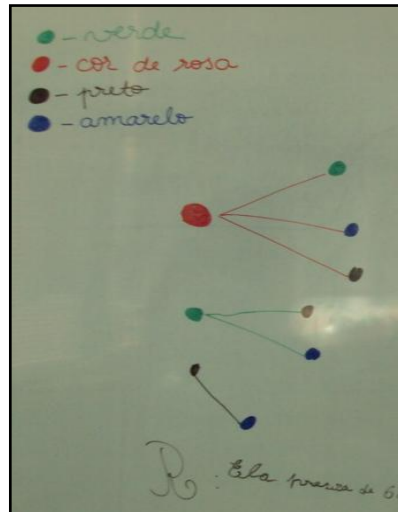 - verde
- cor de rosa
- preto
- amarelo
R: Ela precisa de 6